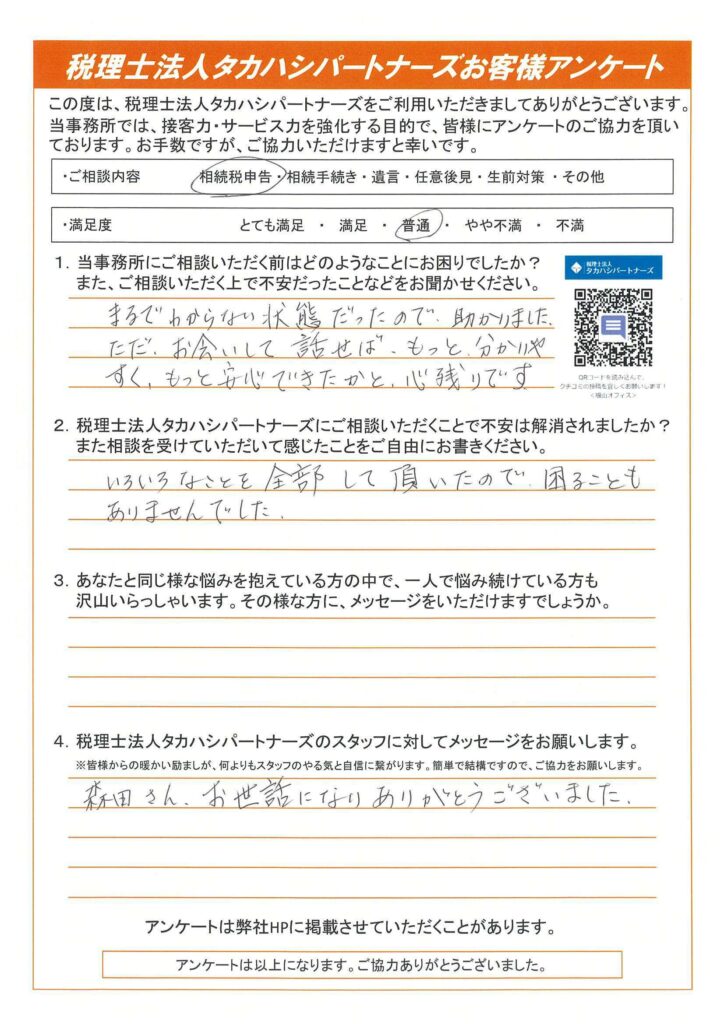 税理士法人タカハシパートナーズお客様アンケート
この度は、税理士法人タカハシパートナーズをご利用いただきましてありがとうございます。
当事務所では、接客力・サービス力を強化する目的で、皆様にアンケートのご協力を頂い
ております。お手数ですが、ご協力いただけますと幸いです。
・ご相談内容 相続税申告・相続手続き・遺言・任意後見・生前対策・その他
・満足度 とても満足 ・ 満足 ・ 普通 ・ やや不満 ・ 不満
1．当事務所にご相談いただく前はどのようなことにお困りでしたか？
また、ご相談いただく上で不安だったことなどをお聞かせください。
税理士法人
タカハシパートナーズ
QRコードを読み込んで、
クチコミの投稿を宜しくお願いします！
＜横山オフィス＞
まるでわからない状態だったので、助かりました。
ただ、お会いして話せば、もっと、分かりや
すく、もっと安心できたかと、心残りです
2．税理士法人タカハシパートナーズにご相談いただくことで不安は解消されましたか？
また相談を受けていただいて感じたことをご自由にお書きください。
いろいろなことを全部して頂いたので、困ることも
ありませんでした。
3．あなたと同じ様な悩みを抱えている方の中で、一人で悩み続けている方も
沢山いらっしゃいます。その様な方に、メッセージをいただけますでしょうか。
4．税理士法人タカハシパートナーズのスタッフに対してメッセージをお願いします。
※皆様からの暖かい励ましが、何よりもスタッフのやる気と自信に繋がります。簡単で結構ですので、ご協力をお願いします。
森田さん、お世話になりありがとうございました。
アンケートは弊社HPに掲載させていただくことがあります。
アンケートは以上になります。ご協力ありがとうございました。